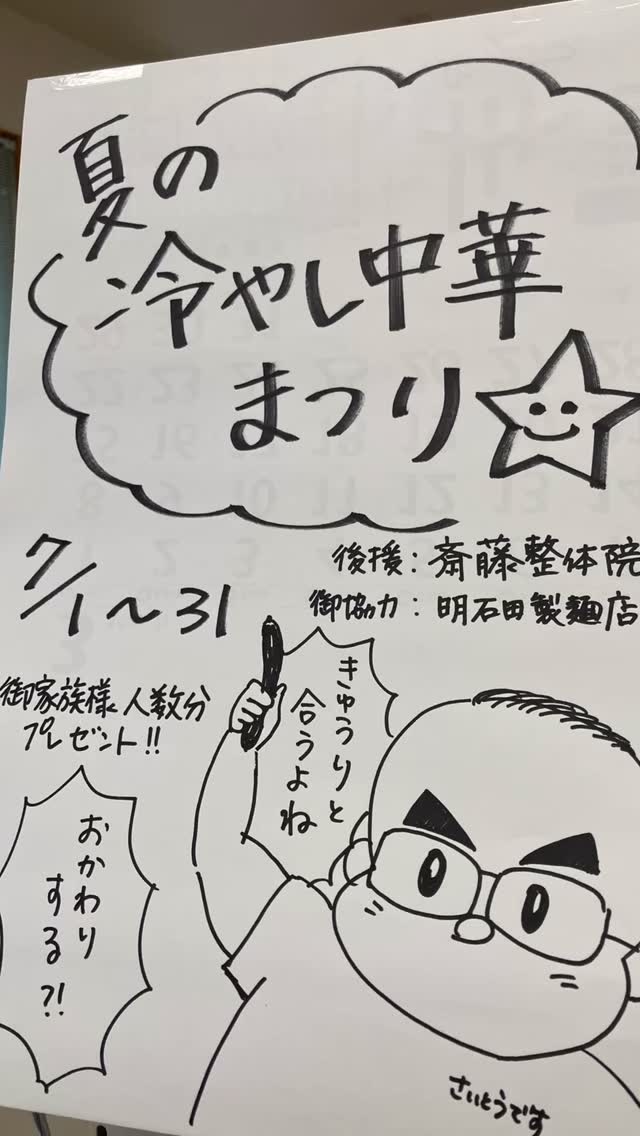 夏の
冷やし中華
まつり
7/1〜31
後援：斎藤整体院
御協力：明石田製麺店
御家族様人数分
プレゼント!!
きゅうりと
合うよね
おかわり
する?!
さいとうです